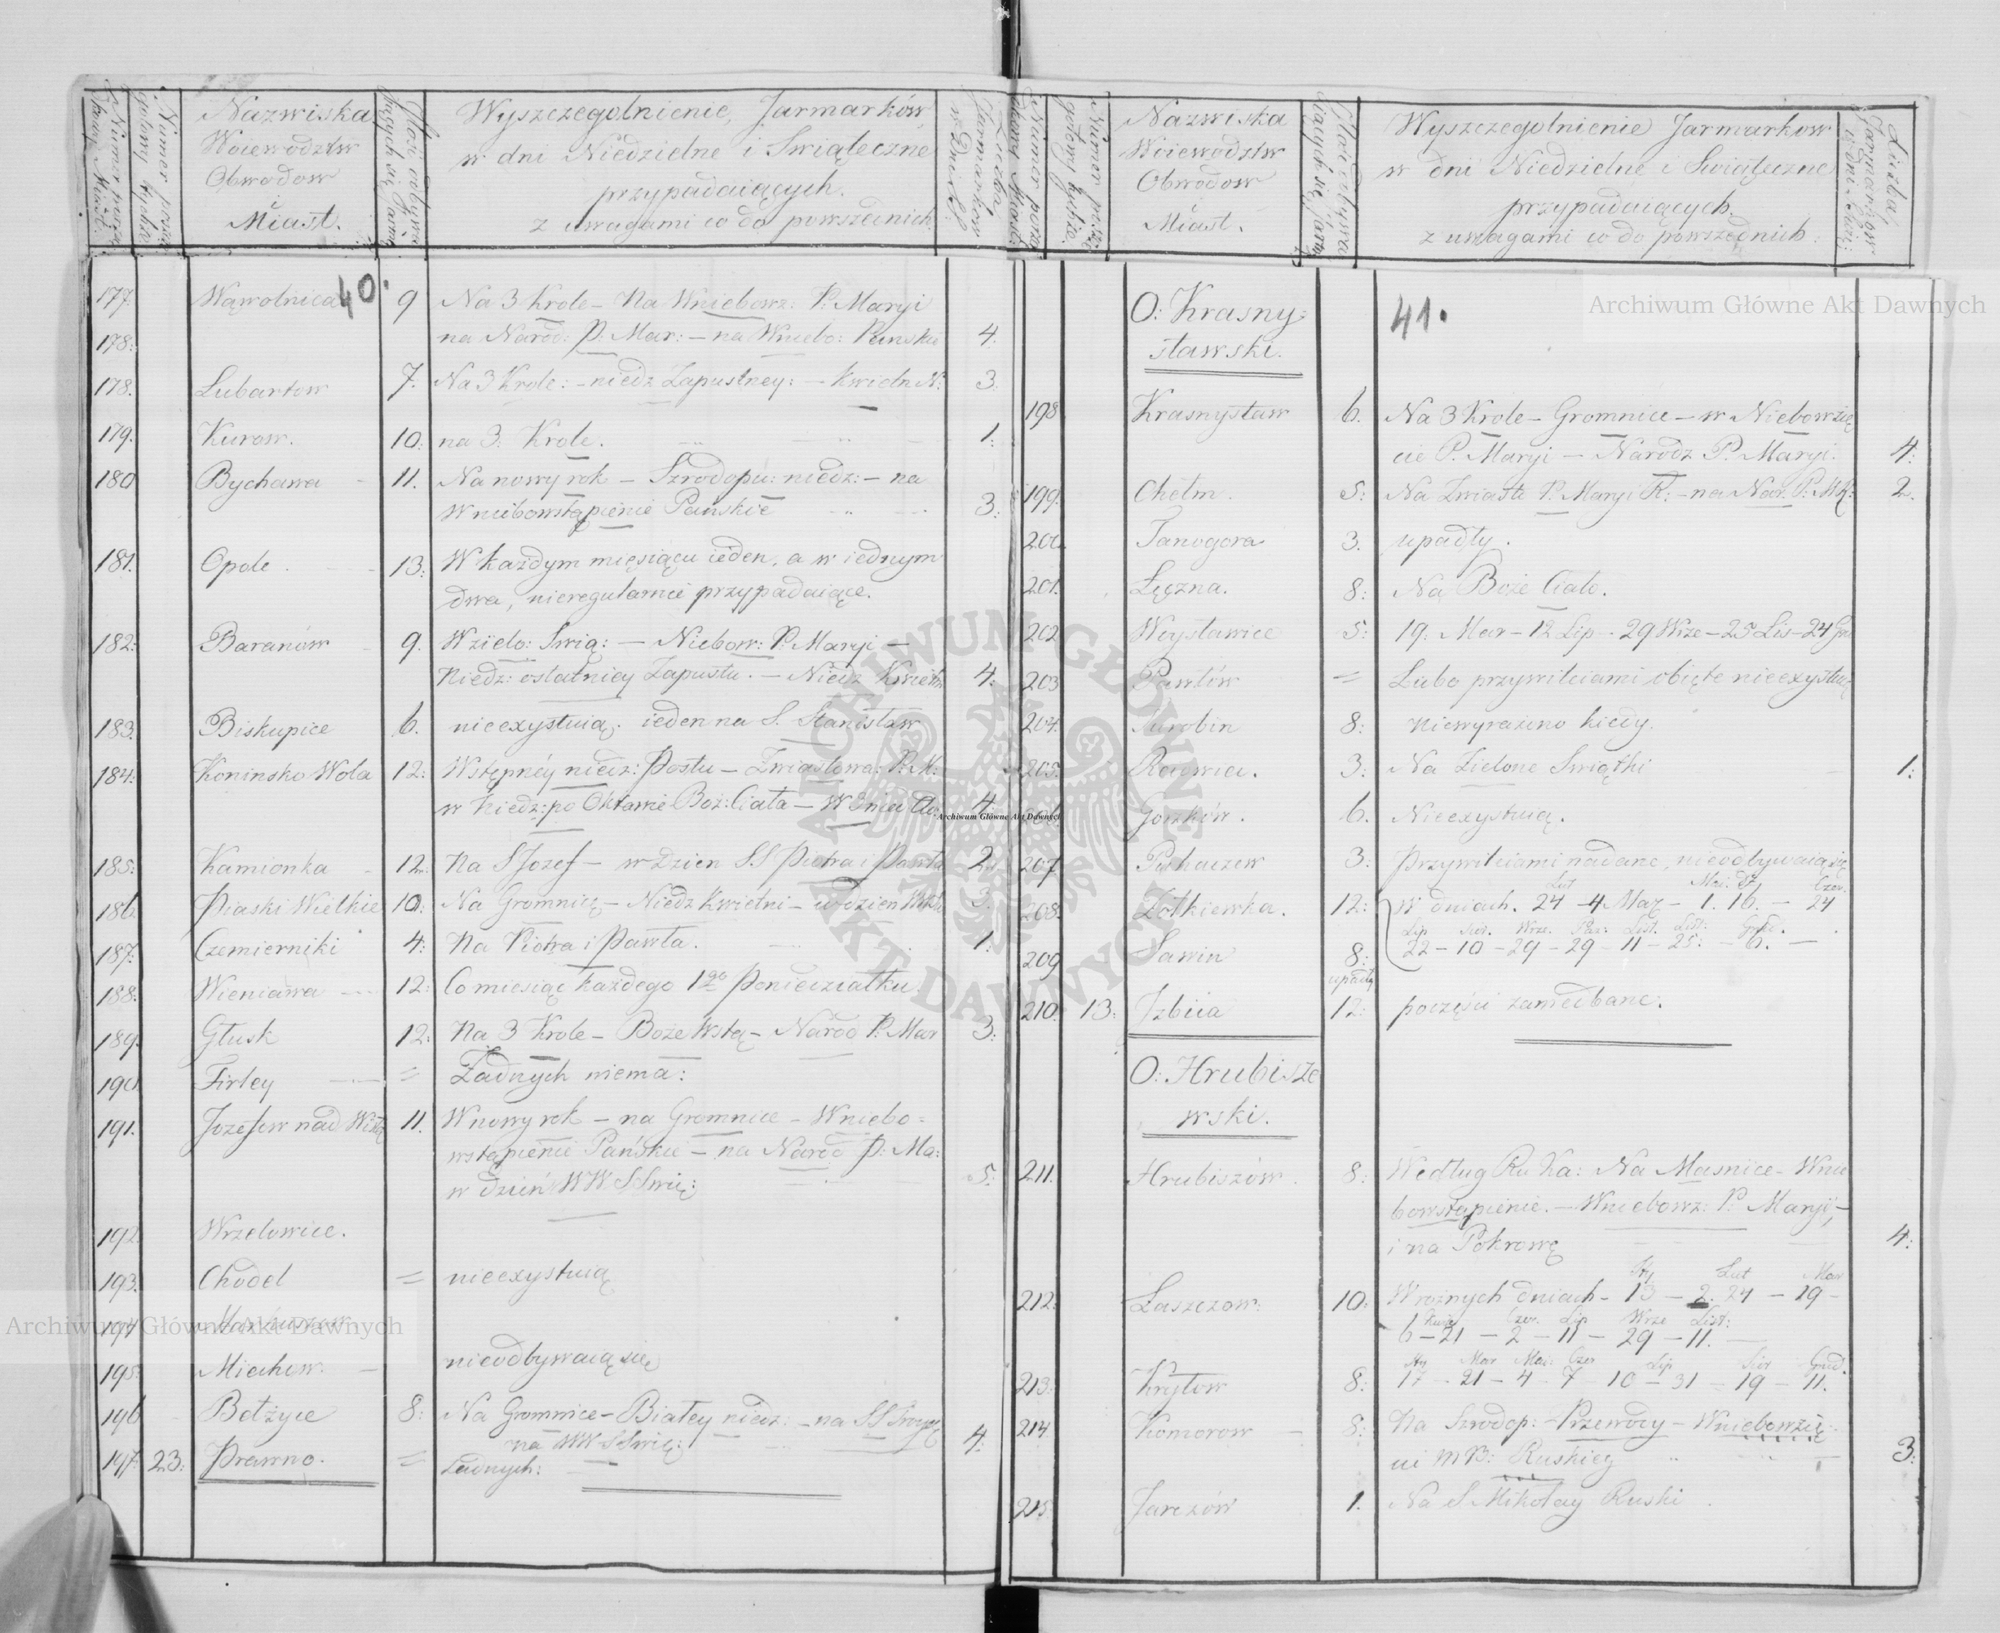 Nazwiska
Woiewodztw
Obwodow
i
Miast.
Wyszczegolnienie, Jarmarków
w dni Niedzielne i Swiąteczne
przypadaiących.
z uwagami co do powszednich
Liczba
Jarmarkow
40.
177. Wąwolnica 9 Na 3 Krole – Na Wniebowz: P. Maryi
178. na Narod: P: Mar: – na Wniebo: Panskie 4.
178. Lubartow 7. Na 3 Krole: – niedz Zapustney: – Kwietn N: 3.
179. Kurow. 10: na 3. Krole. 1.
180 Bychawa 11. Na nowy rok – Szrodopu: niedz: – na
Wniebowstąpienie Pańskie 3.
181. Opole. 13: W każdym miesiącu ieden, a w iednym
dwa, nieregularnie przypadaiące.
182: Baranów 9. W zielo: Swią: – Niebow: P: Maryi –
Niedz: ostatniey Zapustu. – Niedz Kwietn 4.
183. Biskupice 6. nieexystuią. ieden na S. Stanisław
184: Koninsko Wola 12: Wstępnéy niedz: Postu – Zwiastowa: P: M:
w Niedz: po Oktawie Boż: Ciała – 4.
185: Kamionka 12: Na S Jozef – w Dzien SS Piotra i Pawła 2.
186. Piaski Wielkie 10: Na Gromnicę – Niedz Kwietni – w dzien 3.
187. Czemierniki 4: Na Piotra i Pawła. 1.
188. Wieniawa 12: Co miesiąc każdego 1go Poniedziałku
189. Głusk 12: Na 3 Krole – Boże Wstą – Narod P: Mar 3.
190. Firley = Żadnych niema:
191. Jozefow nad Wisłą 11. W nowy rok – na Gromnice – Wniebo=
wstąpienie Pańskie – na Narod P: Ma:
w dzień WW SSwię: 5.
192. Wrzelowice.
193. Chodel = nieexystuią
194 Markuszow
195. Miechow: nieodbywaią się
196 Bełżyce 8: Na Gromnice – Białey niedz: – na SS Troycę
na WW SSwię: 4.
197. 23: Prawno. = Żadnych:
Nazwiska
Woiewodztw
Obwodow
i
Miast.
Wyszczegolnienie Jarmarkow
w dni Niedzielne i Swiąteczne
przypadaiących.
z uwagami co do powszednich.
Liczba
Jarmarkow
41.
O: Krasny=
stawski.
198 Krasnystaw 6. Na 3 Krole – Gromnice – w Niebowzię
cie P. Maryi – Narodz P. Maryi. 4.
199. Chełm. 5: Na Zwiast: P: Maryi R: – na Nar. P: M R: 2.
200. Tarnogora 3. upadły.
201. Łęczna. 8: Na Boże Ciało.
202. Woysławice 5: 19. Mar – 12 Lip – 29 Wrze – 25 Lis – 24 Gru
203 Pawłów = Lubo przywileiami obięte nieexystuią
204. Turobin 8: niewyrażono kiedy.
205. Reiowiec. 3: Na Zielone Swiątki 1:
206. Gorzków. 6. Nieexystuią.
207 Puchaczew 3: Przywileiami nadane, nieodbywaią się
Lut Czer.
208. Żołkiewka. 12: w dniach. 24 – 4 Mar – 1. 16. – 24
Lip Sier. Wrze. Paz: List. List: Grud.
22 – 10 – 29 – 29 – 11 – 25: – 6. –
209 Sawin 8:
upadły
210. 13: Izbica 12: poczęści zaniedbane.
O: Hrubisze
wski.
211. Hrubiszów. 8: Według Ru Ka: Na Masnice – Wnie
bowstąpienie. – Wniebowz: P: Maryi, –
i na Pokrowę 4:
Sty Lut Mar
212. Łaszczow: 10: W rożnych dniach – 13 – 2. 24 – 19 –
Czer. Lip Wrze List:
6 – 21 – 2 – 11 – 29 – 11. –
Sty Mar Mai: Czer Lip Sier Grud.
213. Kryłow 8: 17 – 21 – 4 – 7 – 10 – 31 – 19 – 11.
214 Komorow 8: Na Szrodop: – Przewody – Wniebowzię
ci M B: Ruskiey 3:
215. Jarczów 1. Na S Mikołay Ruski.
Archiwum Główne Akt Dawnych
Archiwum Główne Akt Dawnych
Archiwum Główne Akt Dawnych
ARCHIWUM GŁÓWNE
AKT DAWNYCH